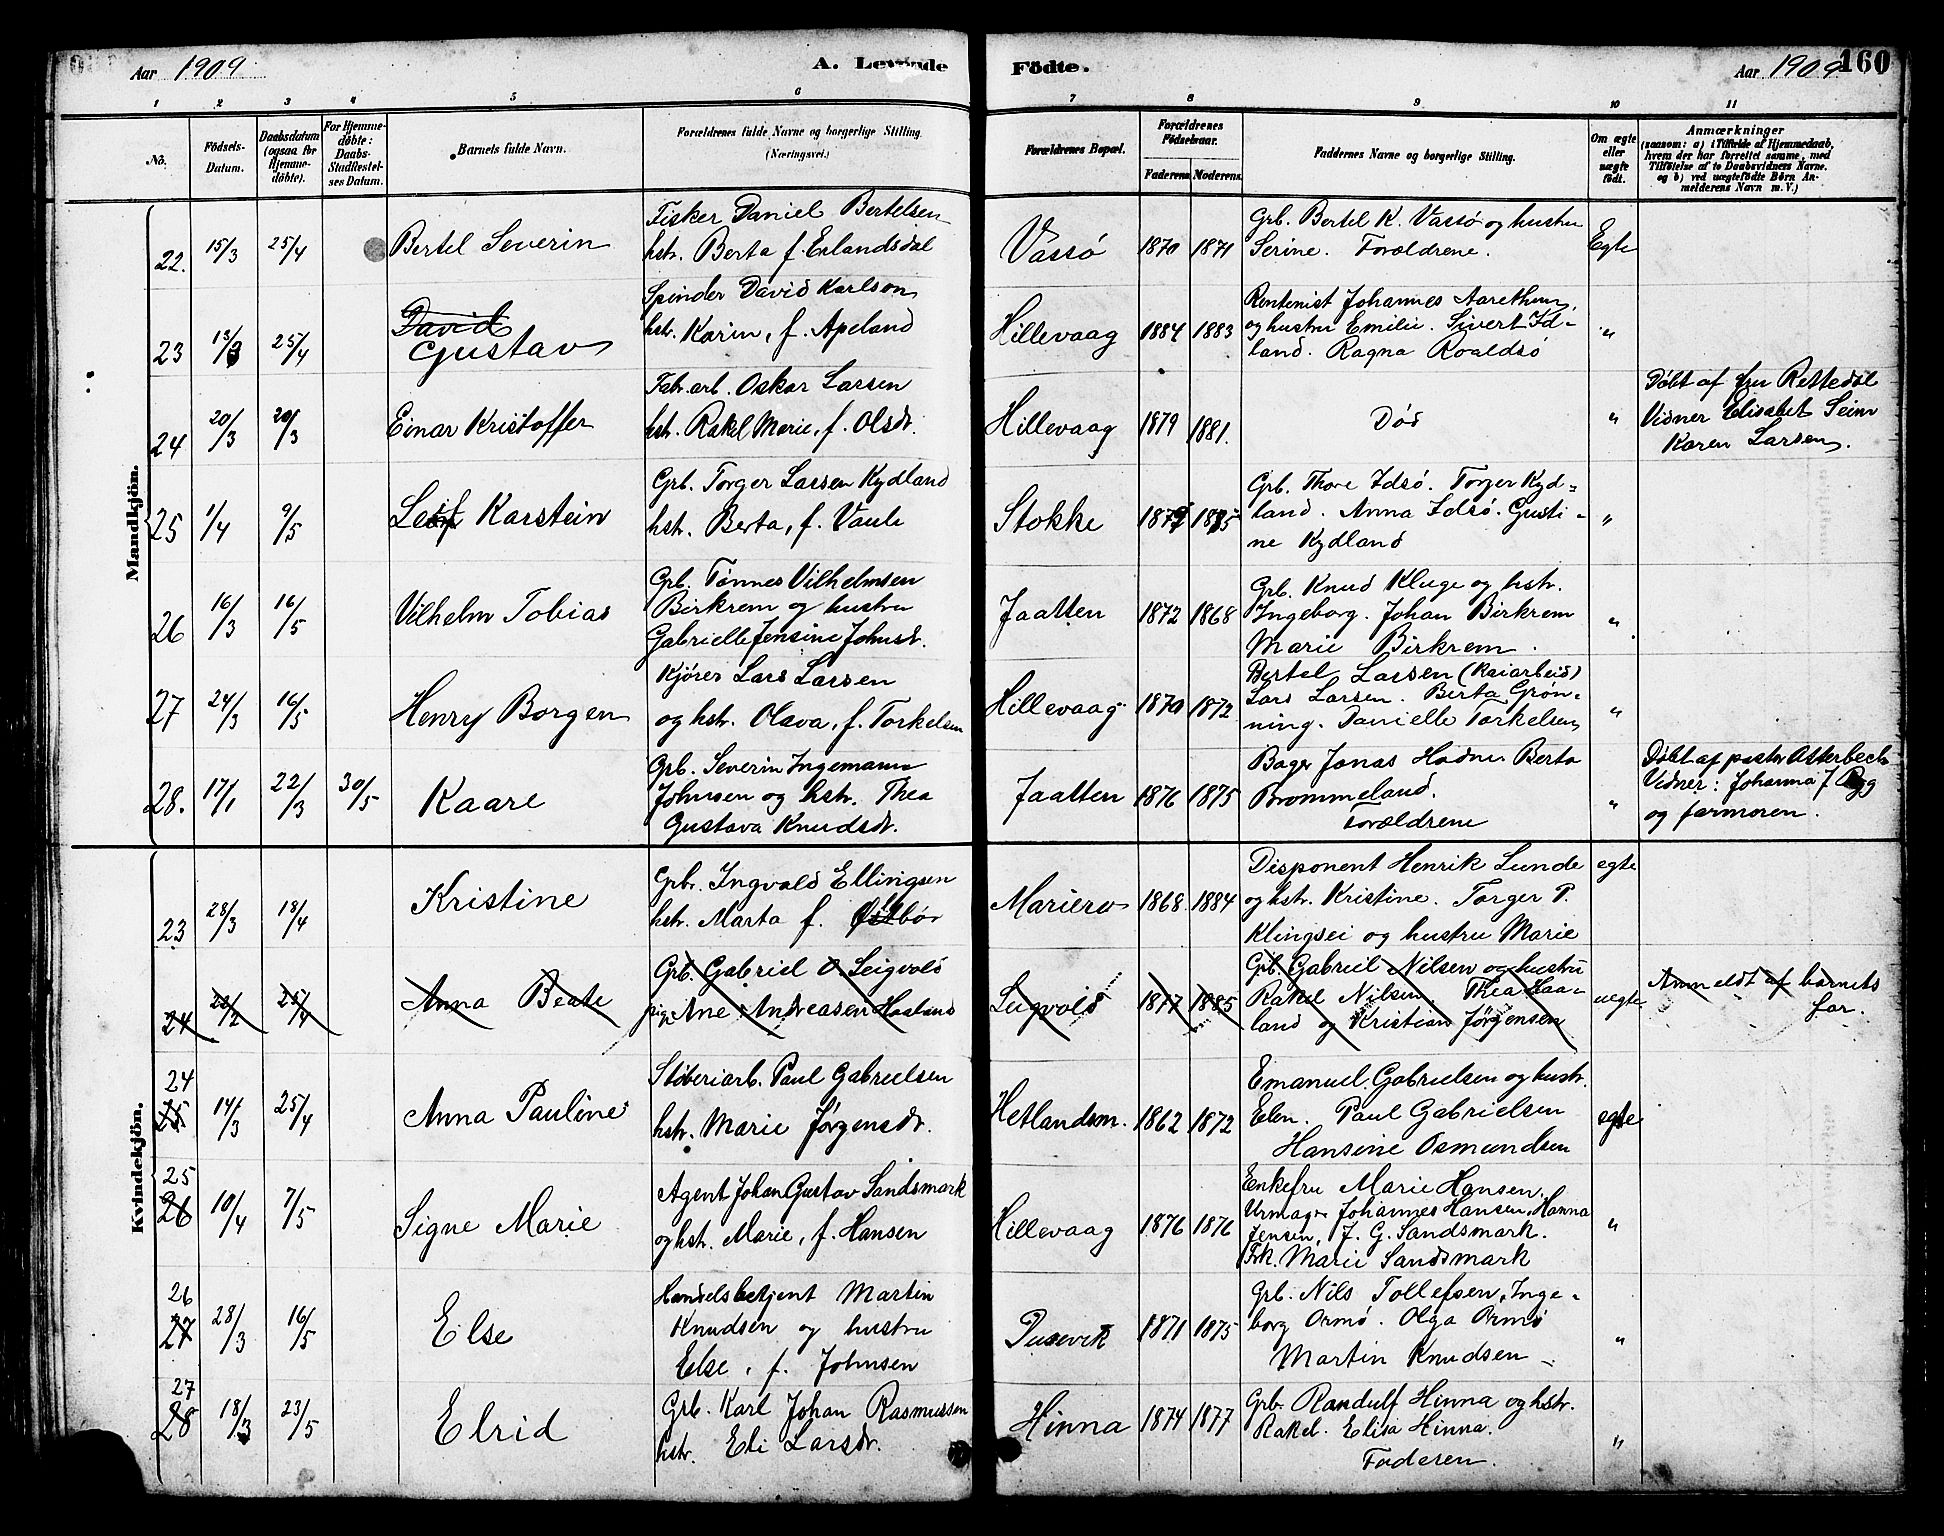 Aar 1909
A. Levende
Födte.
Aar 1909
160
1 2 3 4 5 6 7 8 9 10 11
No.
Födsels-
Datum.
Daabsdatum
(ogsaa for
Hjemme-
döbte).
For Hjemme-
döbte:
Daabs-
Stadfæstel-
ses Datum.
Barnets fulde Navn.
Forældrenes fulde Navne og borgerlige Stilling.
(Næringsvei.)
Forældrenes Bopæl.
Forældrenes
Födselsaar.
Faderens. Moderens.
Faddernes Navne og borgerlige Stilling.
Om ægte
eller
uægte
födt.
Anmærkninger
(saasom: a) i Tilfælde af Hjemmedaab,
hvem der har forrettet samme, med
Tilföielse af to Daabsvidners Navne,
og b) ved uægtefödte Börn An-
melderens Navn m. V.)
Mandkjön.
22. 15/3 25/4
Bertel Severin
Fisker Daniel Bertelsen
hstr. Berta f. Erlandsdal
Vassø
1870 1871
Grb. Bertel K. Vassø og hustru
Serine. Forældrene.
Egte
23 13/3 25/4
David
Gustav
Spinder David Karlson
hstr. Karin, f. Apeland
Hillevaag
1884 1883
Rentenist Johannes Aarethun
og hustru Emilie. Sivert Id-
land. Ragna Roaldsø
"
24 20/3 20/3
Einar Kristoffer
Fabr.arb. Oskar Larsen
hstr. Rakel Marie, f. Olsdr.
Hillevaag
1879 1881.
Død
"
Døbt af fru Rettedal
Vidner Elisabet Seim
Karen Larsen.
25 1/4 9/5
Leif Karstein
Grb. Torger Larsen Kydland
hstr. Berta, f. Vaule
Stokke
1879 1885
Grb. Thore Idsø. Torger Kyd-
land. Anna Idsø. Gusti-
ne Kydland
"
26 16/3 16/5
Vilhelm Tobias
Grb. Tønnes Vilhelmsen
Birkrem og hustru
Gabrielle Jensine Johnsdr.
Jaatten
1872 1868
Grb. Knud Kluge og hstr.
Ingeborg. Johan Birkrem
Marie Birkrem.
"
27 24/3 16/5
Henry Borgen
Kjører Lars Larsen
og hstr. Olava, f. Torkelsen
Hillevaag
1870 1872
Bertel Larsen (Kaiarbeid)
Lars Larsen. Berta Grøn-
ning. Danielle Torkelsen
"
28. 17/1 22/3 30/5
Kaare
Grb. Severin Ingemann
Johnsen og hstr. Thea
Gustava Knudsdr.
Jaatten
1876 1875
Bager Jonas Hodne Berta
Brommeland.
Forældrene
"
Døbt af pastor
Vidner: Johanna J
og farmoren.
Kvindekjön.
23 28/3 18/4
Kristine
Grbr. Ingvald Ellingsen
hstr. Marta f. Østbø
Mariero
1868 1884
Disponent Henrik Lunde
og hstr. Kristine. Torger P.
Klingsei og hustru Marie
egte
24 22/2 25/4
Anna Beate
Grb. Gabriel O Seigvold
pige Ane Andreasen Haaland
1877 1885
Grb. Gabriel Nilsen og hustru
Rakel Nilsen. Thea Haa-
land og Kristian Jørgensen
uegte
Anmeldt af barnets
far.
24
25 14/3 25/4
Anna Pauline
Støberiarb. Paul Gabrielsen
hstr. Marie Jørgensdr.
Hetlandsm.
1862 1872
Emanuel Gabrielsen og hustr.
Elen. Paul Gabrielsen
Hansine Osmundsen
egte
25
26 10/4 7/5
Signe Marie
Agent Johan Gustav Sandsmark
og hstr. Marie, f. Hansen
Hillevaag
1876 1876
Enkefru Marie Hansen,
Urmager Johannes Hansen, Hanna
Jensen, J. G. Sandsmark.
Frk. Marie Sandsmark
"
26
27 28/3 16/5
Else
Handelsbetjent Martin
Knudsen og hustru
Else, f. Johnsen
Dusevik
1871 1875
Grb. Nils Tollefsen, Inge-
borg Ormø. Olga Ormø
Martin Knudsen
"
27
28 18/3 23/5
Elrid
Grb. Karl Johan Rasmussen
hstr. Eli Larsdr.
Hinna
1874 1877
Grb. Randulf Hinna og hstr.
Rakel. Elisa Hinna.
Faderen.
"